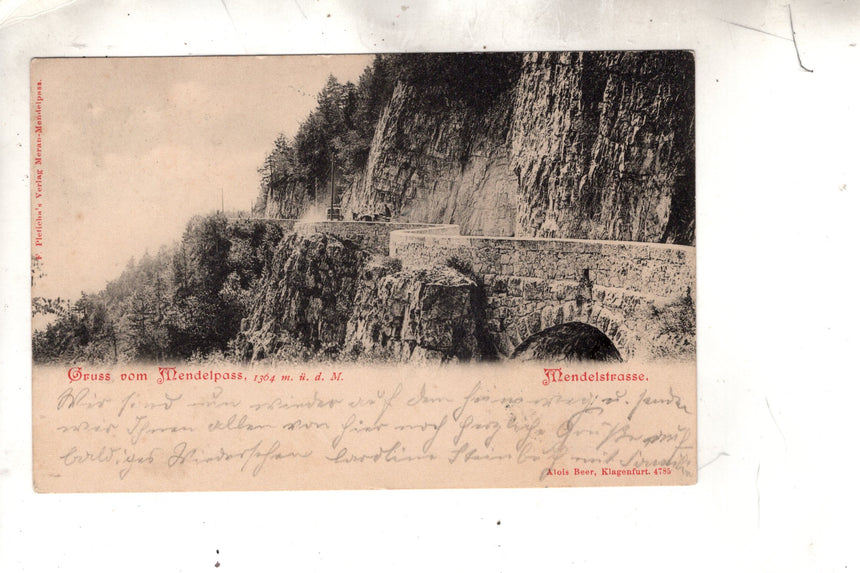 F. Pleticha's Verlag Meran-Mendelpass.
Gruss vom Mendelpass, 1364 m. ü. d. M.
Mendelstrasse.
Wir sind nun wieder auf dem Heimweg u. senden
wir Ihnen allen von hier noch herzliche Grüße auf
baldiges Wiedersehen Caroline mit
Alois Beer, Klagenfurt. 4785